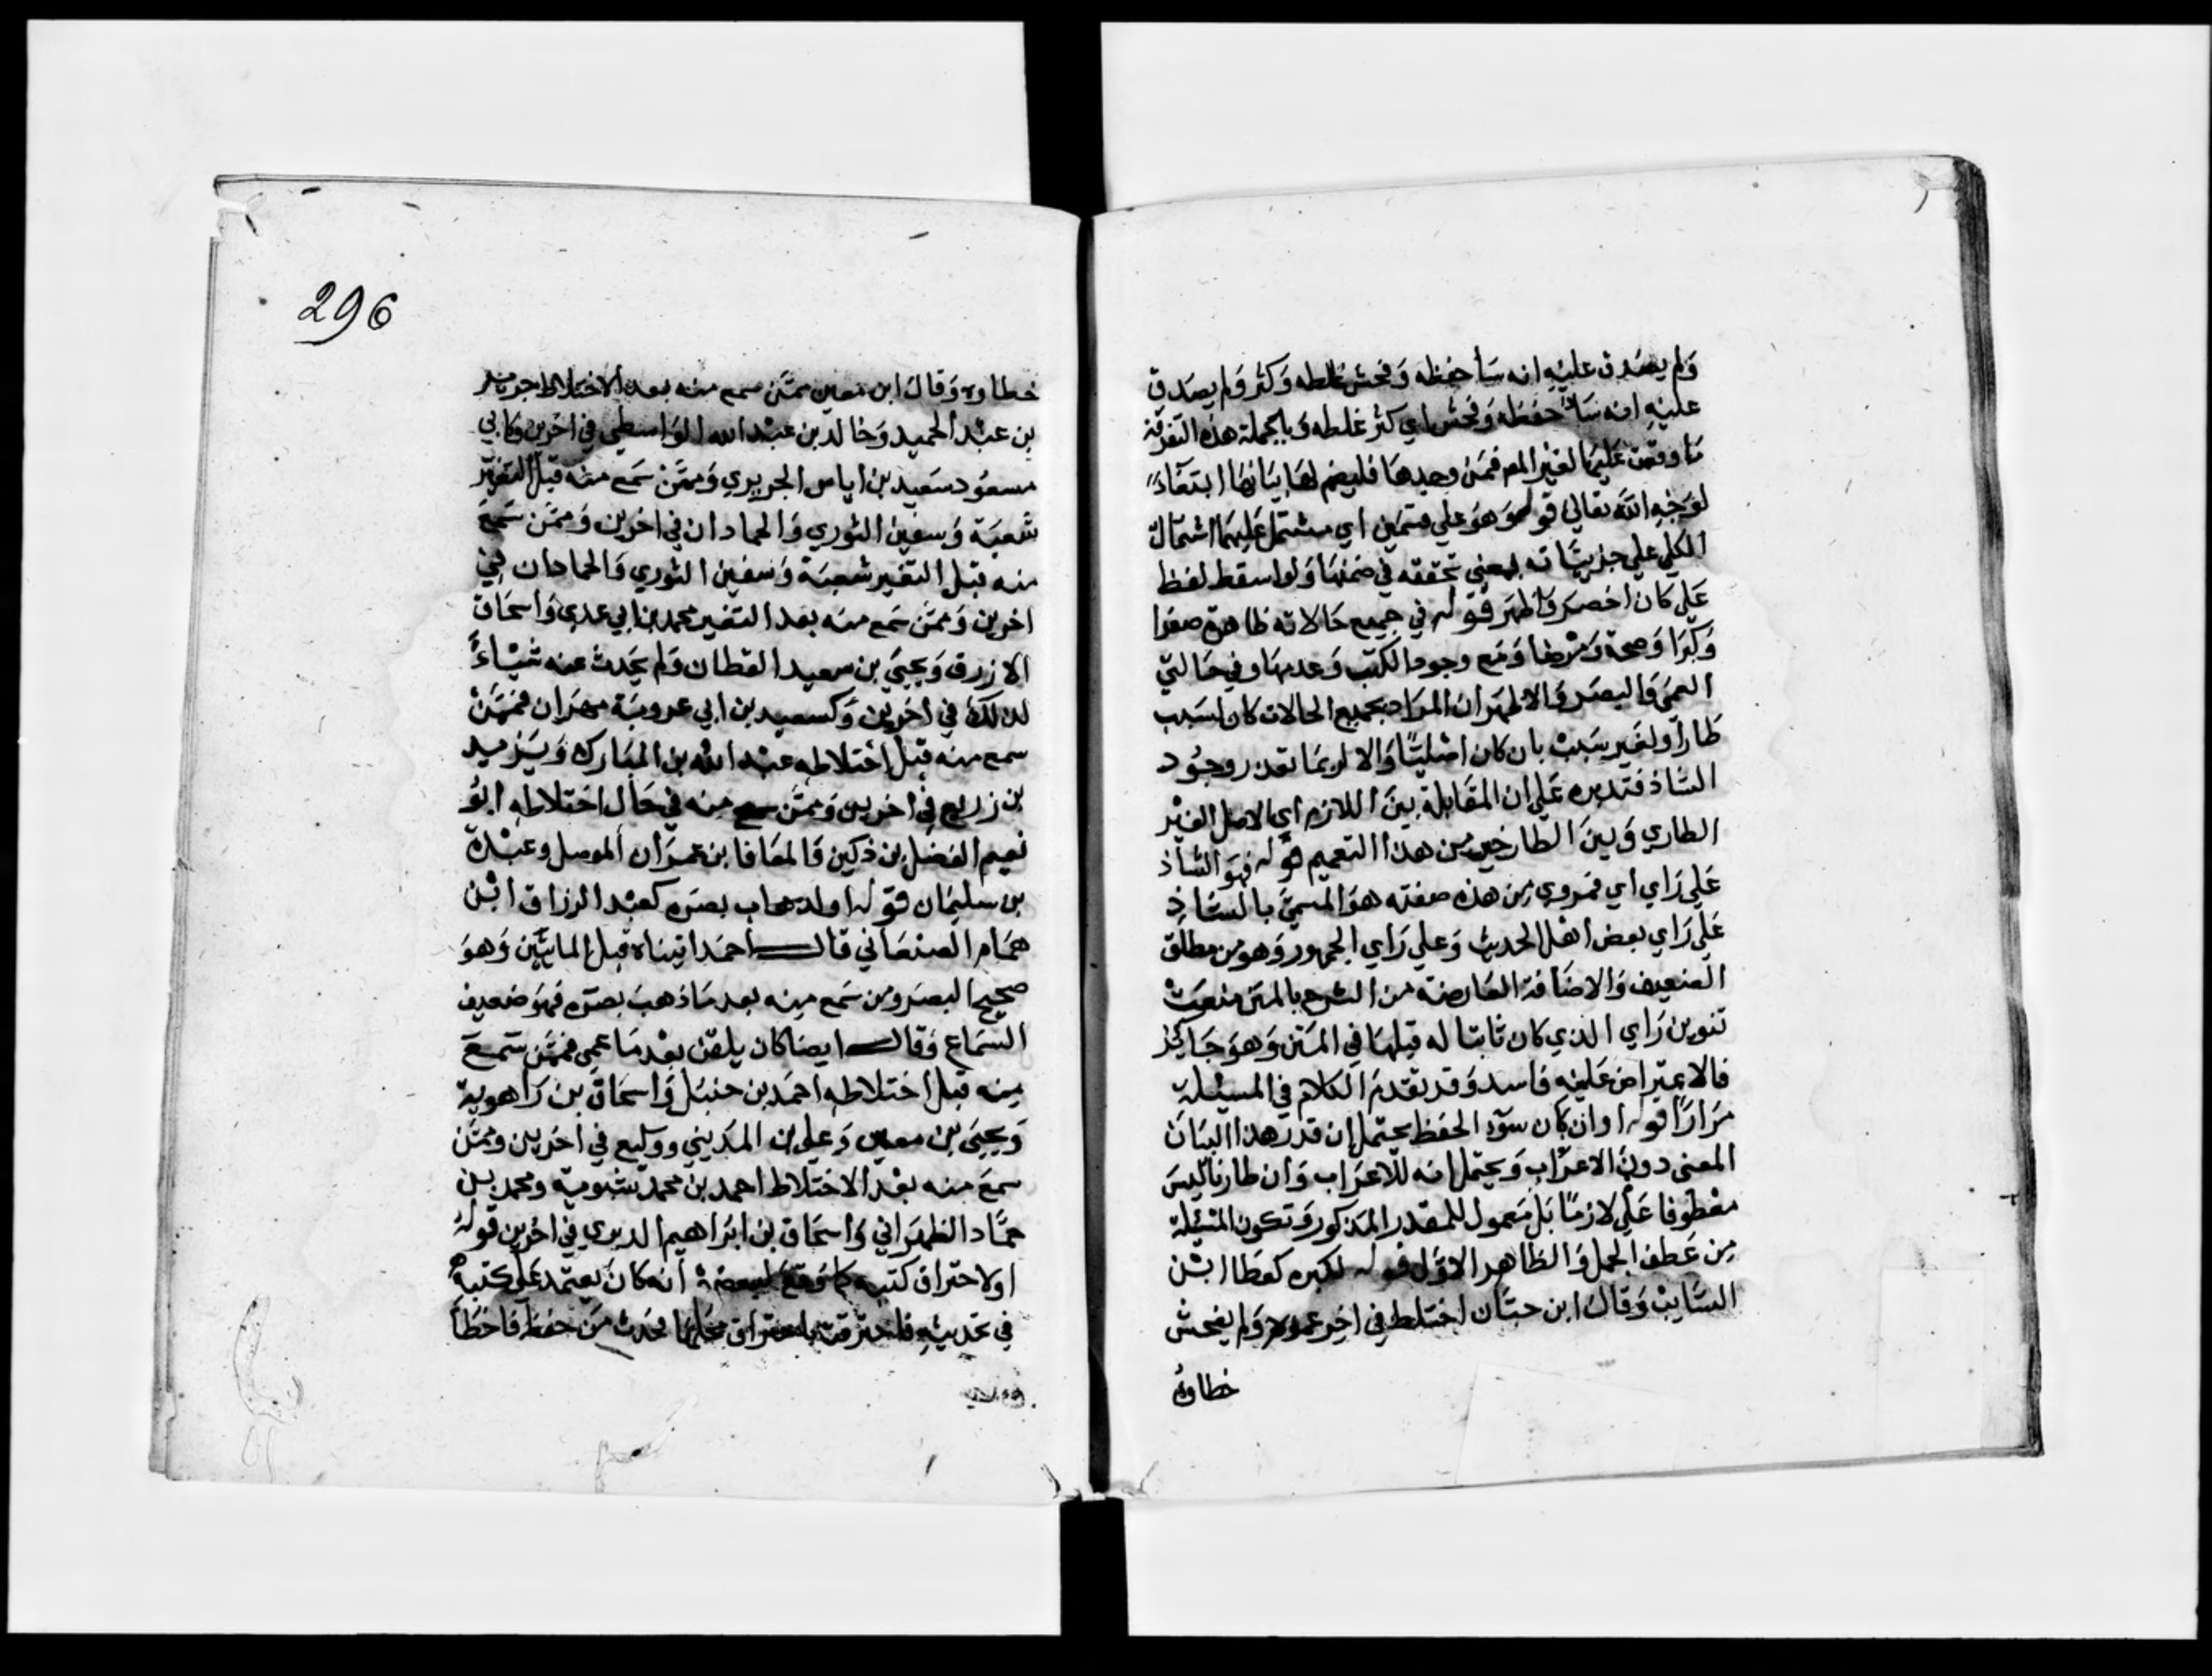 ولم يصدق عليه انه ساء حفظه وفحش غلطه وكثر ولم يصدق
عليه انه ساء حفظه وفحش اي كثر غلطه وبالجملة هذه التفرقة
ما وقفت عليها لغير المص فمن وجدها فليضم لها بيانها ابتغاء
لوجه الله تعالى قوله وهو على قسمين اي مشتمل عليهما اشتمال
الكلي على جزيئاته بمعنى تحققه في ضمنها ولو اسقط لفظ
على كان اخصر واظهر قوله في جميع حالاته ظاهره صغرا
وكبرا وصحة ومرضا ومع وجود الكتب وعدمها وفي حالتي
العمى والبصر والاظهر ان المراد بجميع الحالات كان لسبب
طارا ولغير سبب بان كان اصليا والا لربما تعذر وجود
الشاذ فتدبره على ان المقابلة بين اللازم اي الاصل الغير
الطاري وبين الطار من هذا التعميم قوله فهو الشاذ
على راي اي فمروي من هذه صفته هو المسمى بالشاذ
على راي بعض اهل الحديث وعلى راي الجمهور وهو من مطلق
الضعيف والاضافة العارضة من الشرح بالمتن منعت
تنوين راي الذي كان ثابتا له قبلها في المتن وهو جايز
فالاعتراض عليه فاسد وقد تقدم الكلام في المسيلة
مرارا قوله او ان كان سوء الحفظ يحتمل ان قدر هذا البيان
المعنى دون الاعراب ويحتمل انه للاعراب وان طاريا ليس
معطوفا على لازما بل معمول للمقدر المذكور وتكون المسئلة
من عطف الجمل والظاهر الاول قوله لكبره كعطا ابن
السايب وقال ابن حبان اختلط في اخر عمره ولم يفحش
خطاوه
296
خطاوه وقال ابن معين ممن سمع منه بعد الاختلاط جرير
بن عبد الحميد وخالد بن عبد الله الواسطي في اخرين وكابي
مسعود سعيد بن اياس الجريري وممن سمع منه قبل التغير
شعبة وسفين الثوري والحمادان في اخرين وممن سمع
منه قبل التغير شعبة وسفين الثوري والحمادان في
اخرين وممن سمع منه بعد التغير محمد بن ابي عدي واسحاق
الازرق ويحيى بن سعيد القطان ولم يحدث عنه شياء
لذلك في اخرين وكسعيد بن ابي عروبة مهران فممن
سمع منه قبل اختلاطه عبد الله بن المبارك ويزيد
بن زريع في اخرين وممن سمع منه في حال اختلاطه ابو
نعيم الفضل بن ذكين والمعافا بن عمران الموصل وعبدة
بن سليمان قوله او لذهاب بصره كعبد الرزاق ابن
همام الصنعاني قال احمد اتيناه قبل المايتين وهو
صحيح البصر ومن سمع منه بعد ما ذهب بصره فهو ضعيف
السماع وقال ايضا كان يلقن بعد ما عمي فممن سمع
منه قبل اختلاطه احمد بن حنبل واسحاق بن راهوية
ويحيى بن معين وعلي بن المديني ووكيع في اخرين وممن
سمع منه بعد الاختلاط احمد بن محمد شبوية ومحمد بن
حماد الظهراني واسحاق بن ابراهيم الدبري في اخرين قوله
او لاحتراق كتبه كما وقع لبعضهم انه كان يعتمد على كتبه
في تحديثه فاحترقت باحتراق محلها فحدث من حفظه فاخطأ